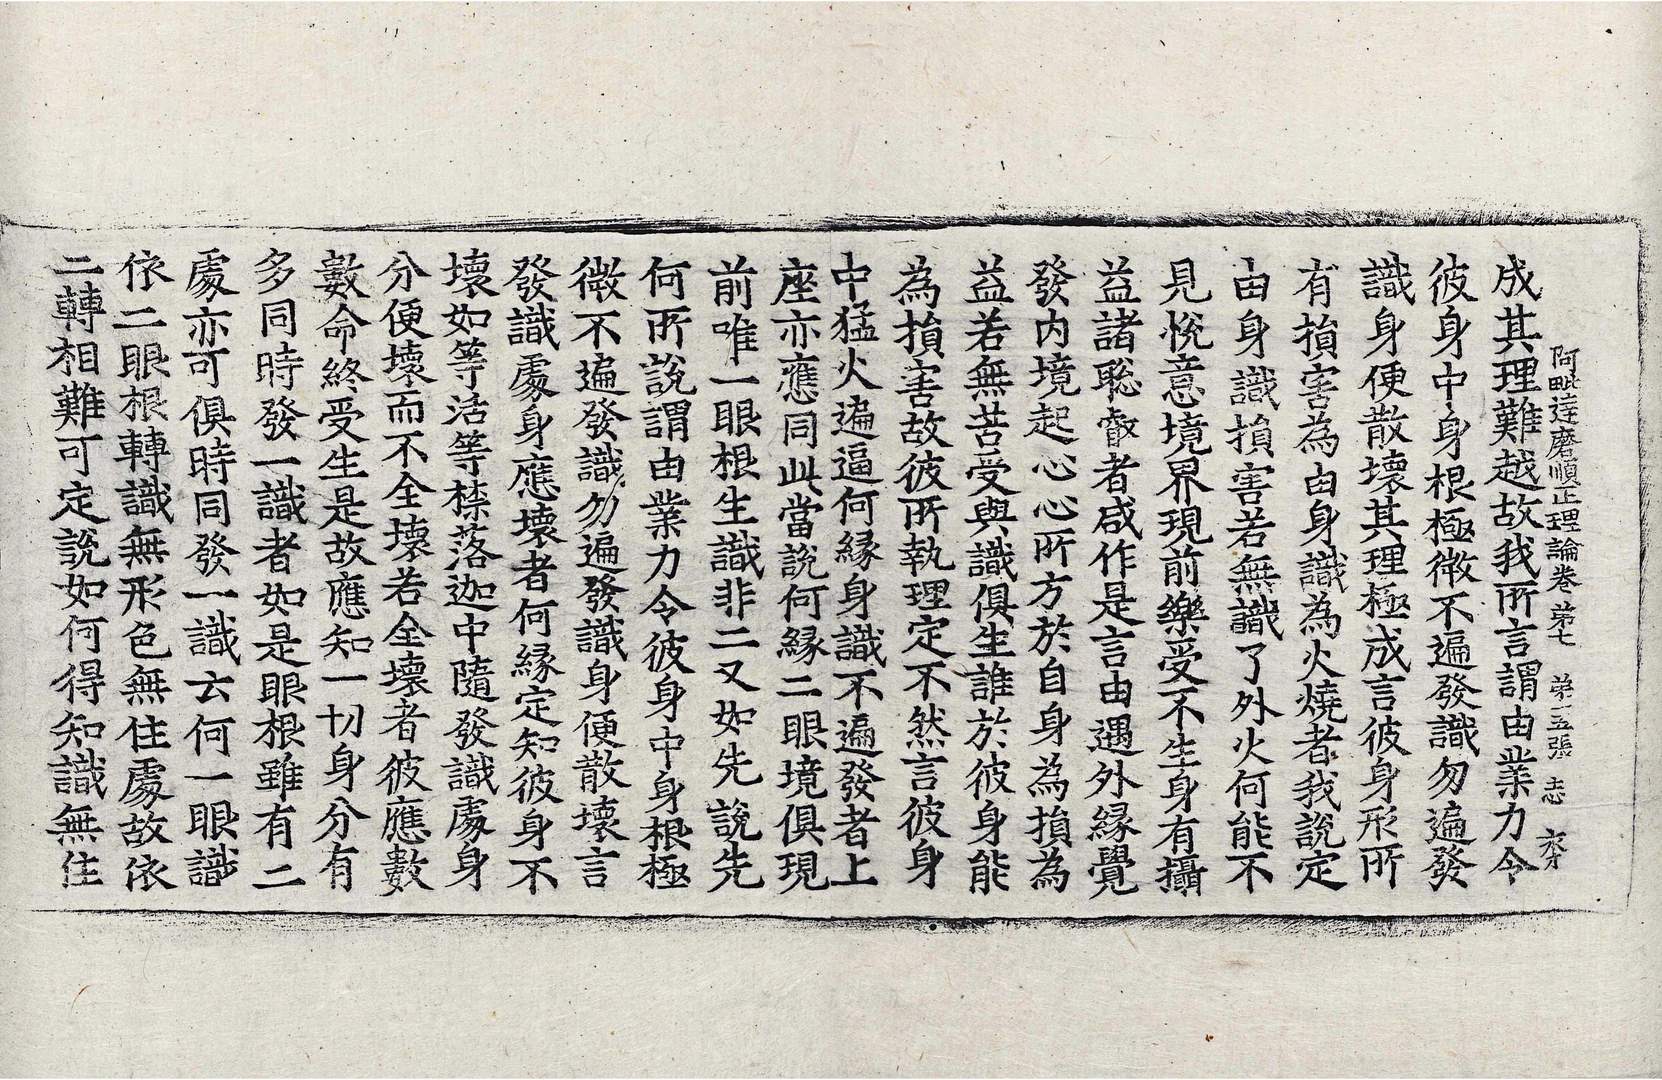 阿毗達磨順正理論卷第七 第十五張 志
成其理難越故我所言謂由業力令
彼身中身根極微不遍發識勿遍發
識身便散壞其理極成言彼身形所
有損害為由身識為火燒者我說定
由身識損害若無識了外火何能不
見悅意境界現前樂受不生身有攝
益諸聡叡者咸作是言由遇外緣覺
發內境起心心所方於自身為損為
益若無苦受與識俱生誰於彼身能
為損害故彼所執理定不然言彼身
中猛火遍逼何緣身識不遍發者上
座亦應同此當說何緣二眼境俱現
前唯一眼根生識非二又如先說先
何所說謂由業力令彼身中身根極
微不遍發識勿遍發識身便散壞言
發識處身應壞者何緣定知彼身不
壞如等活等㮈落迦中隨發識處身
分便壞而不全壞若全壞者彼應數
數命終受生是故應知一切身分有
多同時發一識者如是眼根雖有二
處亦可俱時同發一識云何一眼識
依二眼根轉識無形色無住處故依
二轉相難可定說如何得知識無住